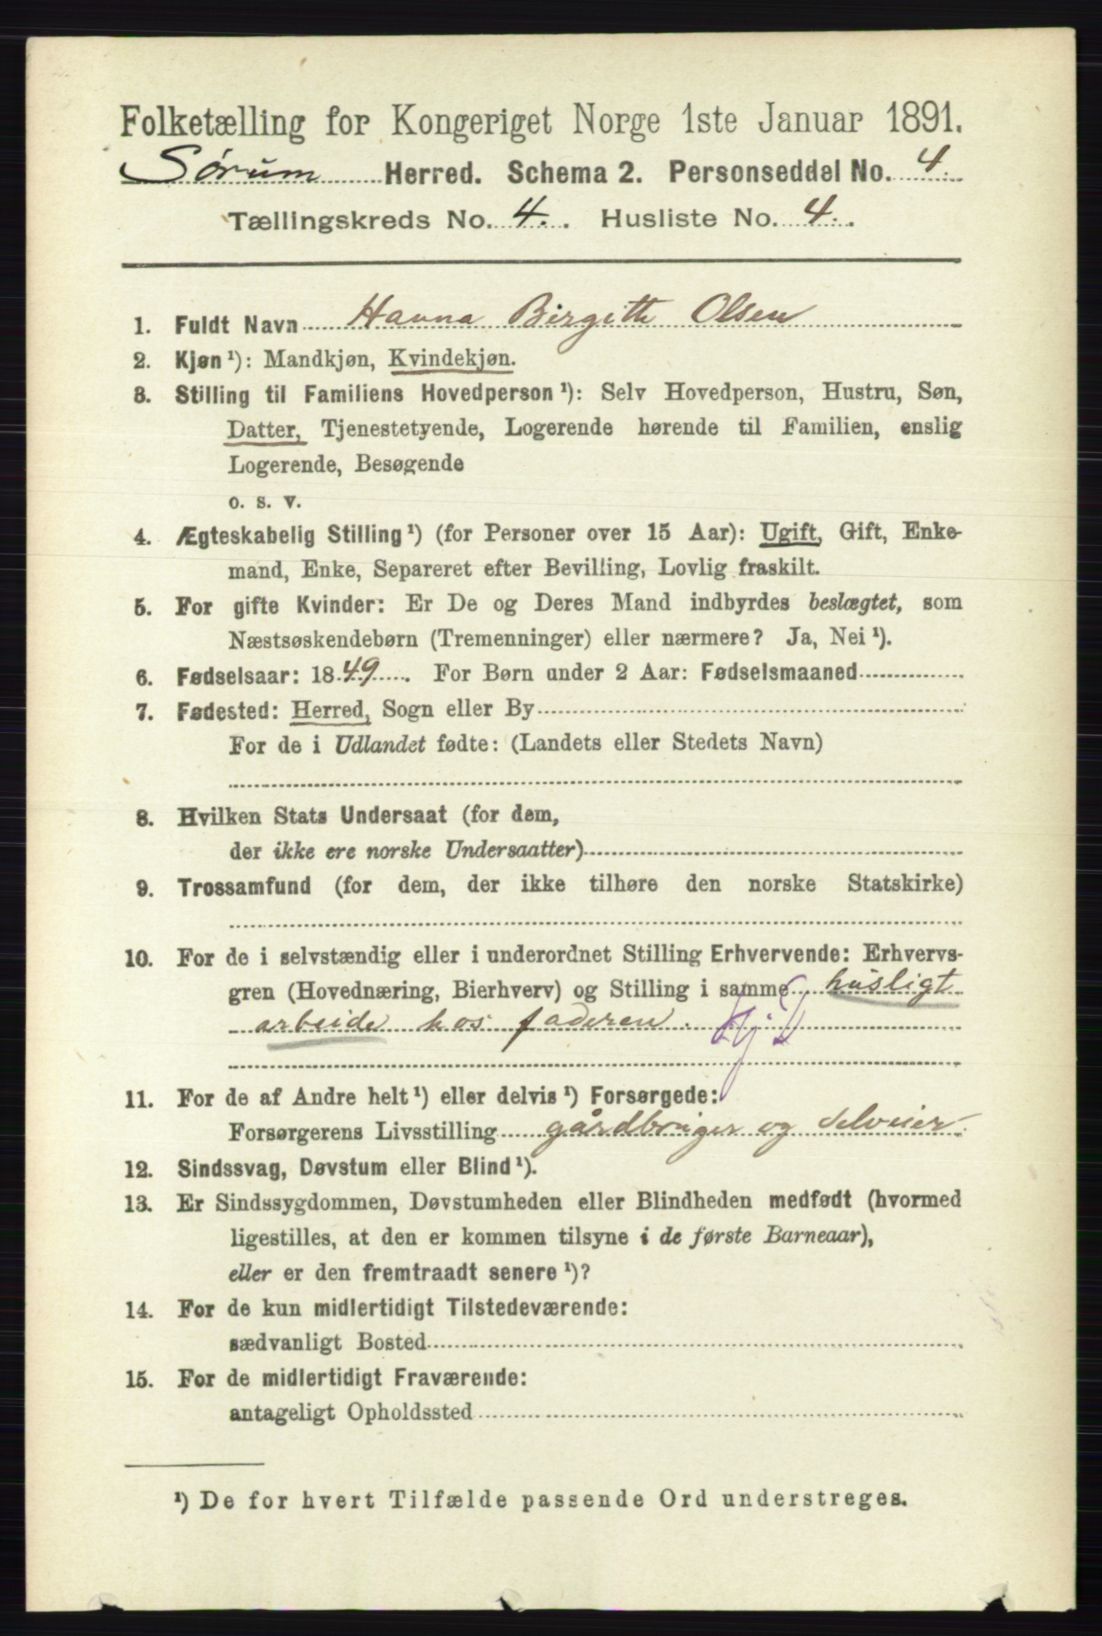 Folketælling for Kongeriget Norge 1ste Januar 1891.
Sørum Herred. Schema 2. Personseddel No. 4.
Tællingskreds No. 4. Husliste No. 4.
1. Fuldt Navn Hanna Birgitte Olsen
2. Kjøn ¹): Mandkjøn, Kvindekjøn.
3. Stilling til Familiens Hovedperson ¹): Selv Hovedperson, Hustru, Søn,
Datter, Tjenestetyende, Logerende hørende til Familien, enslig
Logerende, Besøgende
o. s. v.
4. Ægteskabelig Stilling ¹) (for Personer over 15 Aar): Ugift, Gift, Enke-
mand, Enke, Separeret efter Bevilling, Lovlig fraskilt.
5. For gifte Kvinder: Er De og Deres Mand indbyrdes beslægtet, som
Næstsøskendebørn (Tremenninger) eller nærmere? Ja, Nei ¹).
6. Fødselsaar: 1849. For Børn under 2 Aar: Fødselsmaaned
7. Fødested: Herred, Sogn eller By
For de i Udlandet fødte: (Landets eller Stedets Navn)
8. Hvilken Stats Undersaat (for dem,
der ikke ere norske Undersaatter)
9. Trossamfund (for dem, der ikke tilhøre den norske Statskirke)
10. For de i selvstændig eller i underordnet Stilling Erhvervende: Erhvervs-
gren (Hovednæring, Bierhverv) og Stilling i samme husligt
arbeide hos faderen.
11. For de af Andre helt ¹) eller delvis ¹) Forsørgede:
Forsørgerens Livsstilling gårdbruger og selveier.
12. Sindssvag, Døvstum eller Blind ¹).
13. Er Sindssygdommen, Døvstumheden eller Blindheden medfødt (hvormed
ligestilles, at den er kommen tilsyne i de første Barneaar),
eller er den fremtraadt senere ¹)?
14. For de kun midlertidigt Tilstedeværende:
sædvanligt Bosted
15. For de midlertidigt Fraværende:
antageligt Opholdssted
¹) De for hvert Tilfælde passende Ord understreges.